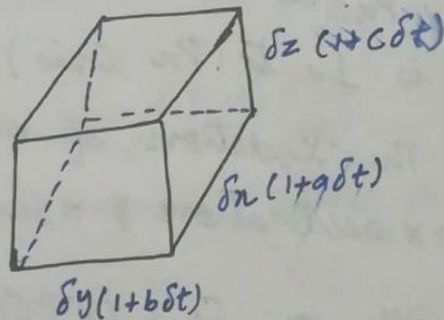 δz (1+cδt)
δx (1+aδt)
δy(1+bδt)